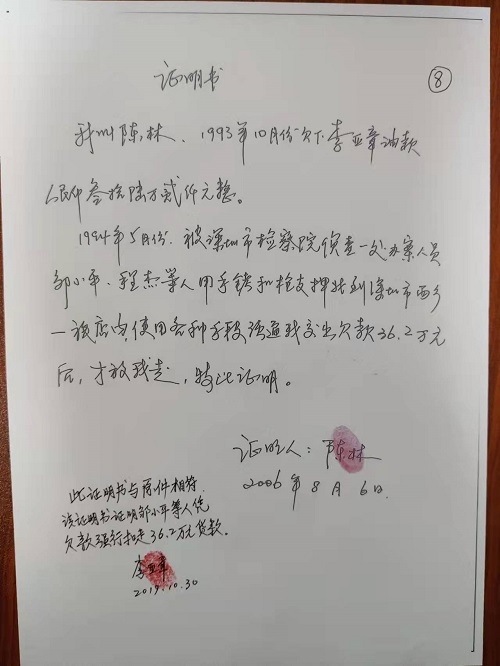 证明书
⑧
我叫陈林、1993年10月份欠下李亚章油款
人民币叁拾陆万贰仟元整。
1994年5月份、被深圳市检察院侦查一处办案人员
邹小平、程杰等人用手铐和枪支押我到深圳市西乡
一旅店内使用各种手段活逼我交出欠款36.2万元
后,才放我走,特此证明。
证明人:陈林
2006年8月6日
此证明书与原件相符.
该证明书证明邹小平等人凭
欠款强行扣走36.2万元货款。
李亚章
2019.10.30